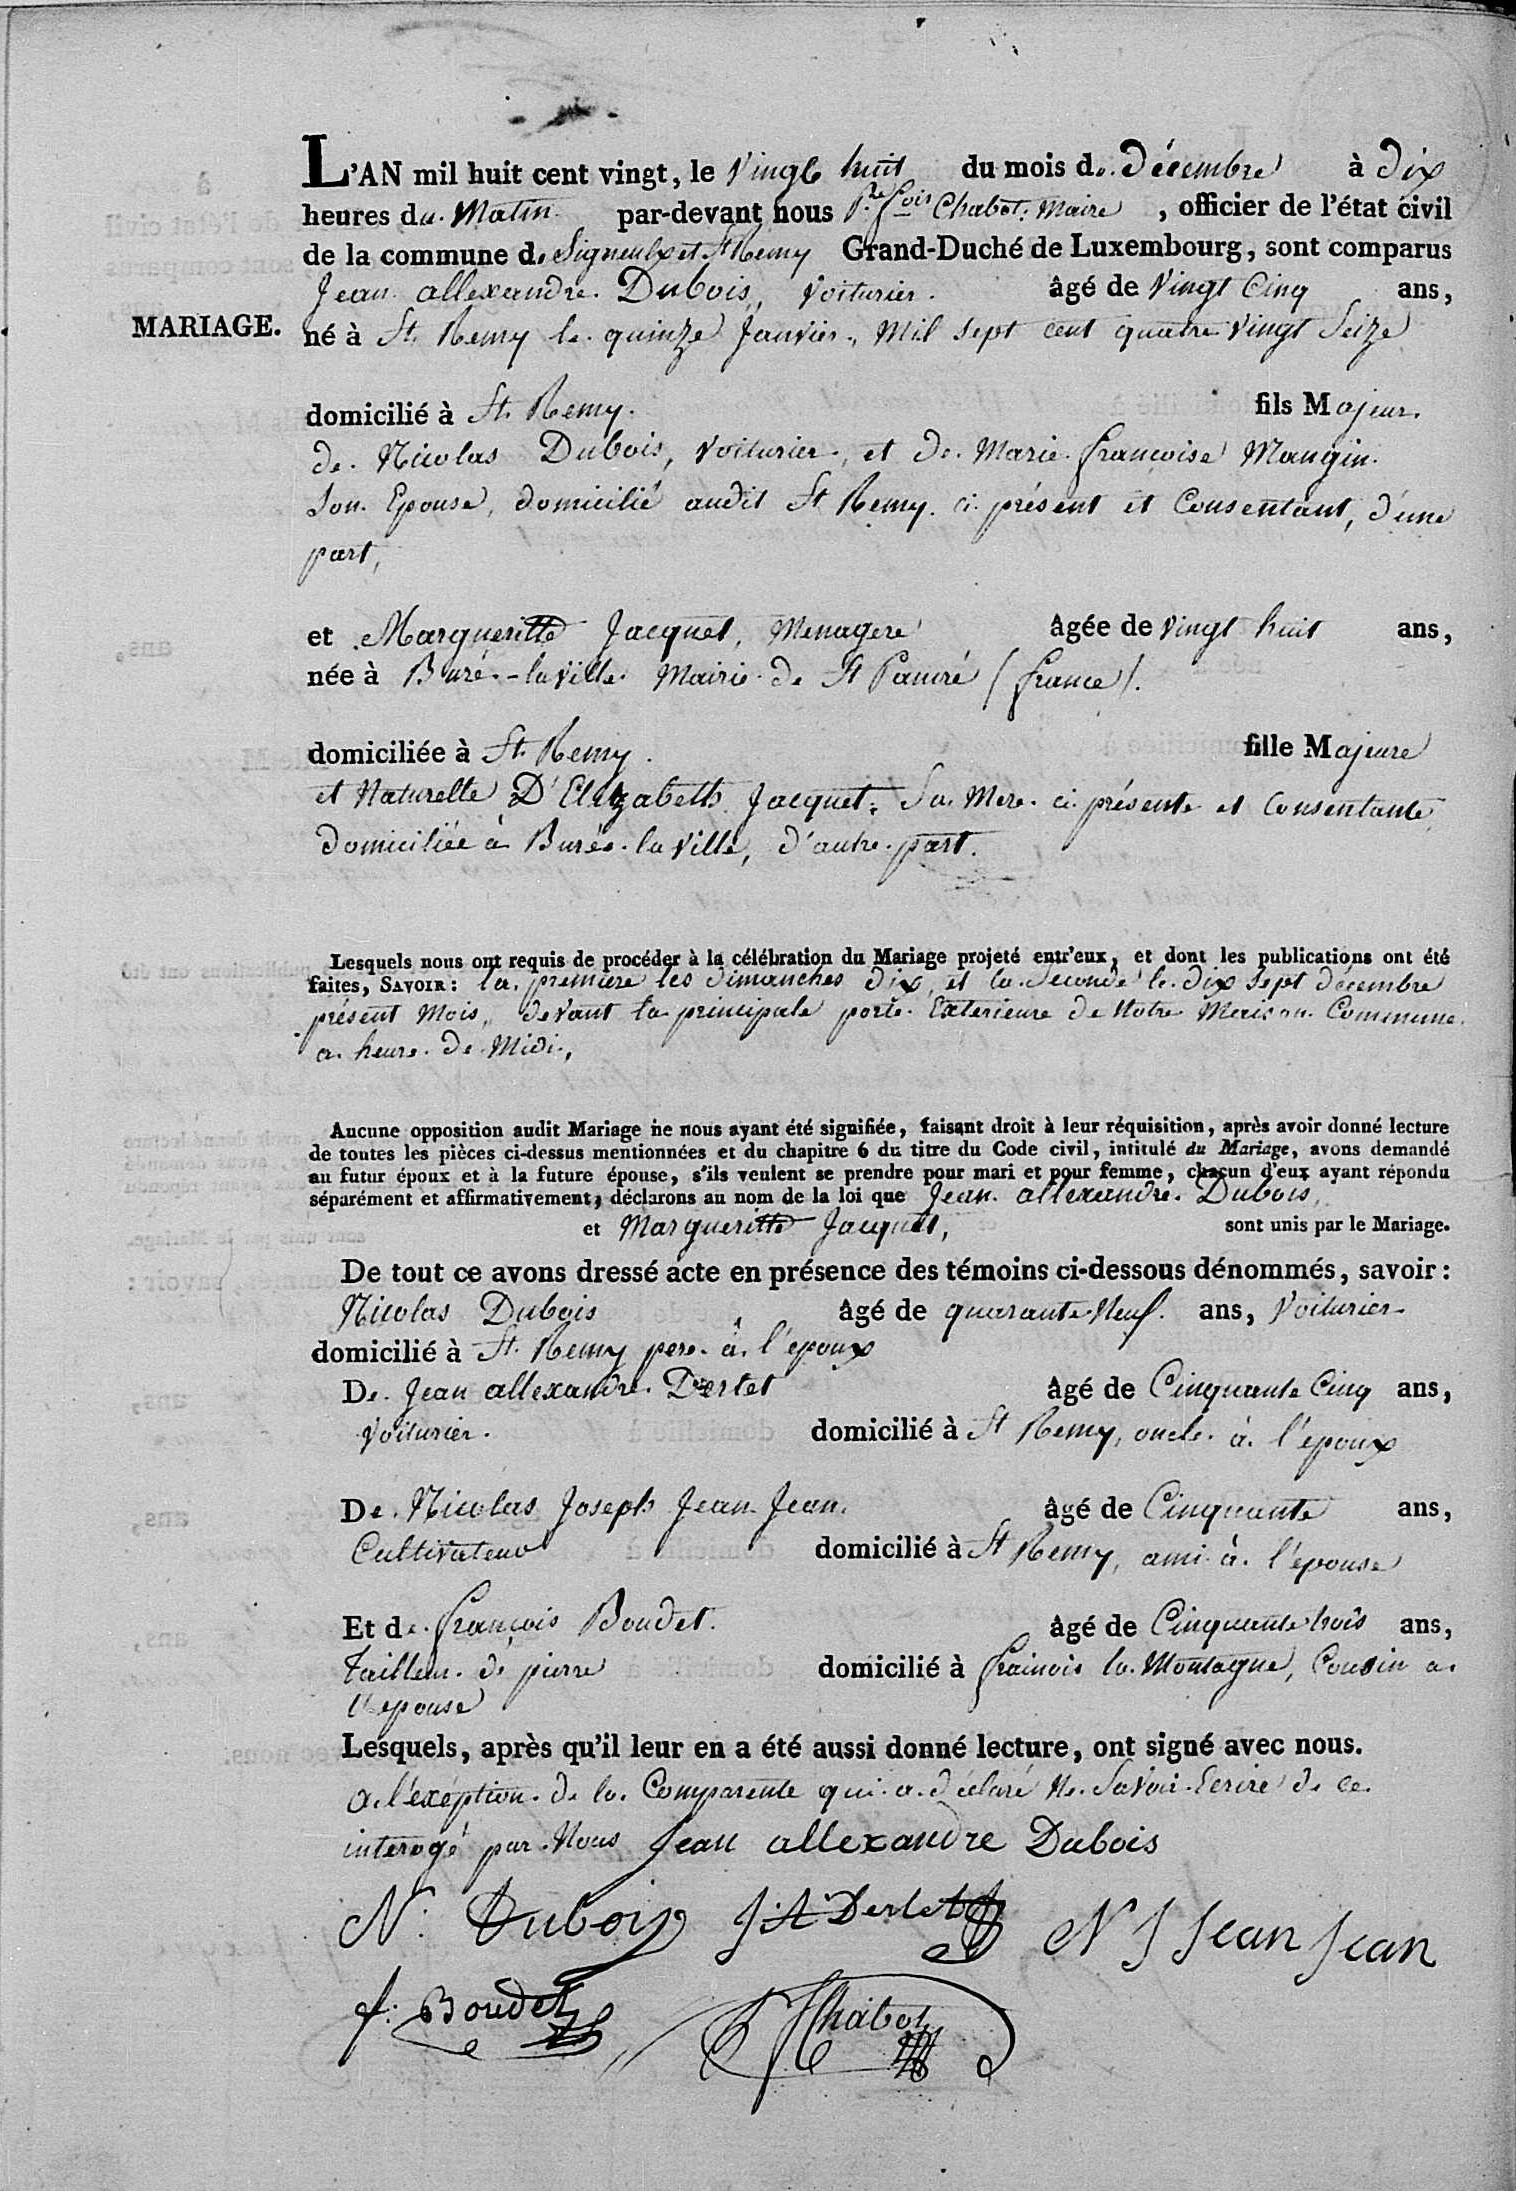 L'AN mil huit cent vingt, le Vingt huit du mois de décembre à dix
heures du Matin par-devant nous P.re f.cois Chabot, Maire, officier de l'état civil
de la commune de Signeulx et St Remy Grand-Duché de Luxembourg, sont comparus
Jean allexandre Dubois, Voiturier. âgé de Vingt Cinq ans,
MARIAGE. né à St. Remy le quinze Janvier, Mil Sept cent quatre Vingt Seize
domicilié à St. Remy. fils Majeur.
de Nicolas Dubois, Voiturier, et de Marie françoise Mangin.
Son Epouse, domicilié audit St Remy. ci présent et Consentant, d'une
part,
et Margueritte Jacquet, Menagere âgée de Vingt huit ans,
née à Buré-la Ville Mairie de St Pancré (france).
domiciliée à St. Remy. fille Majeure
et Naturelle D'Elizabeth Jacquet, Sa Mere ci présente et Consentante,
domiciliée à Buré la Ville, d'autre part.
Lesquels nous ont requis de procéder à la célébration du Mariage projeté entr'eux, et dont les publications ont été
faites, SAVOIR : la premiere les dimanches dix, et la Seconde le dix Sept décembre
présent Mois, devant la principale porte Exterieure de Notre Maison Commune
a heure de Midi,
Aucune opposition audit Mariage ne nous ayant été signifiée, faisant droit à leur réquisition, après avoir donné lecture
de toutes les pièces ci-dessus mentionnées et du chapitre 6 du titre du Code civil, intitulé du Mariage, avons demandé
au futur époux et à la future épouse, s'ils veulent se prendre pour mari et pour femme, chacun d'eux ayant répondu
séparément et affirmativement, déclarons au nom de la loi que Jean allexandre Dubois,
et Margueritte Jacquet, sont unis par le Mariage.
De tout ce avons dressé acte en présence des témoins ci-dessous dénommés, savoir :
Nicolas Dubois âgé de quarante Neuf. ans, Voiturier
domicilié à St. Remy pere à l'epoux
De Jean allexandre Dertet âgé de Cinquante Cinq ans,
Voiturier. domicilié à St Remy, oncle à l'epoux
De Nicolas Joseph Jean Jean. âgé de Cinquante ans,
Cultivateur domicilié à St Remy, ami à l'epouse
Et de françois Boudet. âgé de Cinquante trois ans,
Tailleur de pierre domicilié à frainois la Montagne, Cousin a
l'epouse
Lesquels, après qu'il leur en a été aussi donné lecture, ont signé avec nous.
a l'exéption de la Comparente qui a déclaré Ne Savoir Ecrire de ce
interogé par Nous Jean allexandre Dubois
N. Dubois J A Dertet N J Jean Jean
f. Boudet Chabot